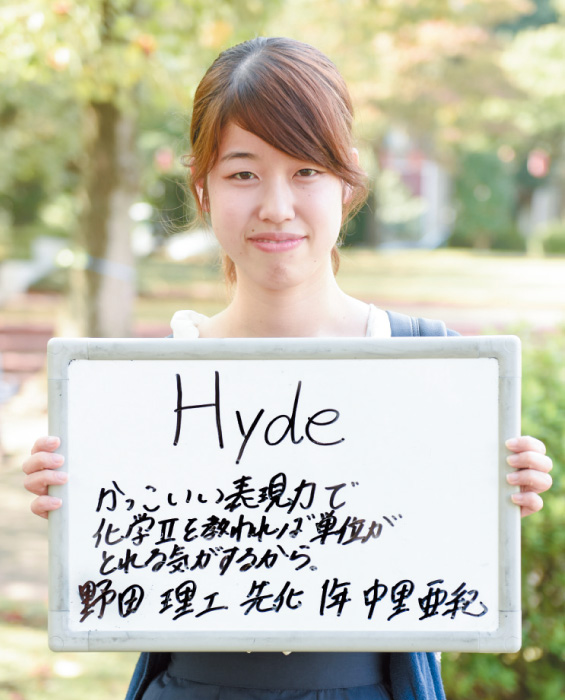 Hyde
かっこいい表現力で
化学Ⅱを教われば単位が
とれる気がするから。
野田 理工 先化 1年 中里亜紀